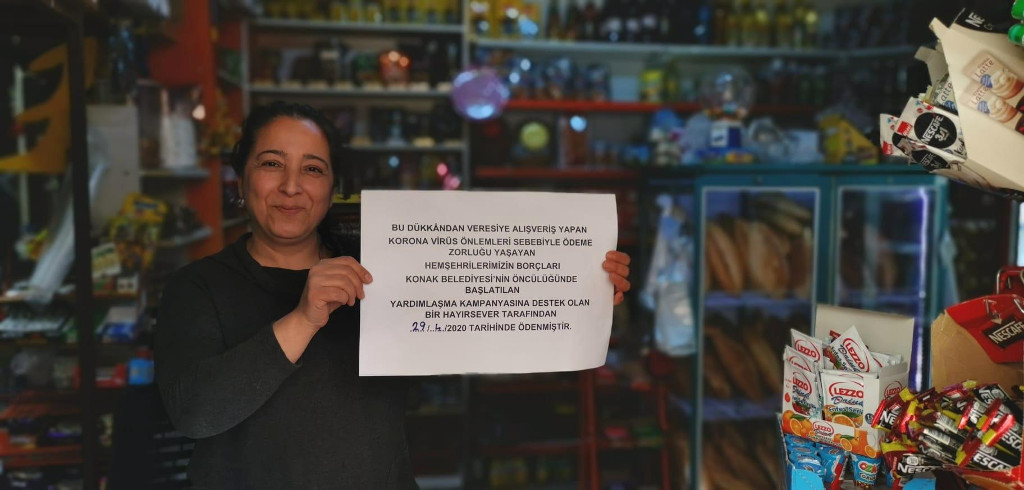 BU DÜKKÂNDAN VERESİYE ALIŞVERİŞ YAPAN
KORONA VİRÜS ÖNLEMLERİ SEBEBİYLE ÖDEME
ZORLUĞU YAŞAYAN
HEMŞEHRİLERİMİZİN BORÇLARI
KONAK BELEDİYESİ'NİN ÖNCÜLÜĞÜNDE
BAŞLATILAN
YARDIMLAŞMA KAMPANYASINA DESTEK OLAN
BİR HAYIRSEVER TARAFINDAN
29/.4./2020 TARİHİNDE ÖDENMİŞTİR.
NESCAFÉ
NESCAFÉ
LEZZO
LEZZO
LEZZO
LEZZO